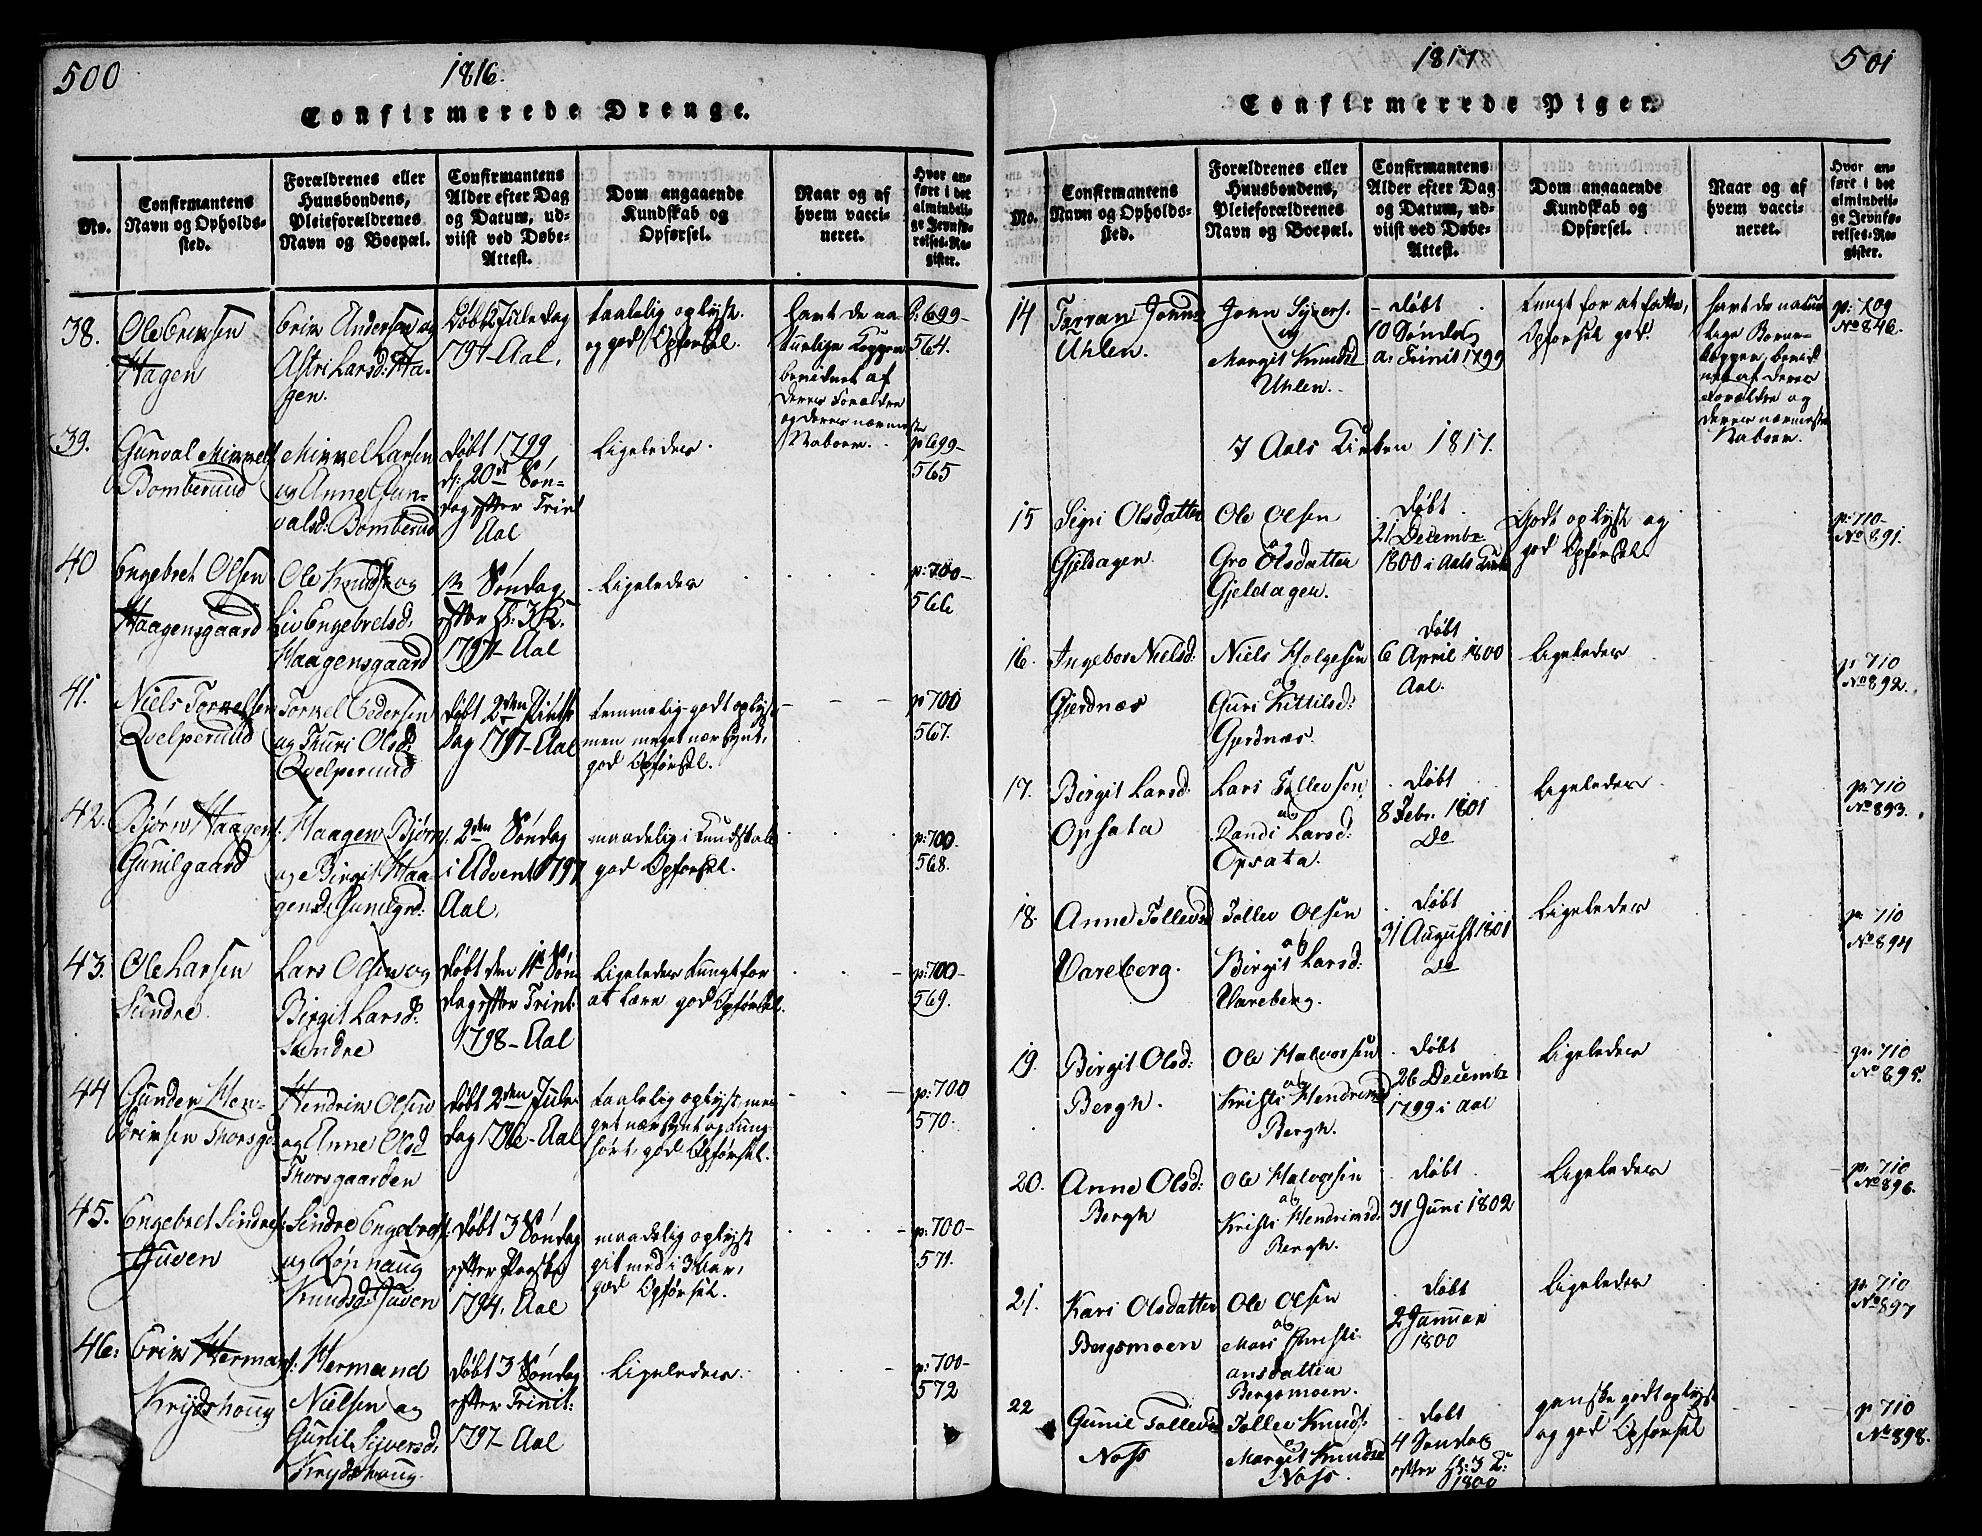 500
1816.
Confirmerede Drenge.
No.
Confirmantens
Navn og Opholds-
sted.
Forældrenes eller
Huusbondens,
Pleieforældrenes
Navn og Boepæl.
Confirmantens
Alder efter Dag
og Datum, ud-
viist ved Døbe-
Attest.
Dom angaaende
Kundskab og
Opførsel.
Naar og af
hvem vacci-
neret.
Hvor an-
ført i det
almindeli-
ge Jevnfø-
relses-Re-
gister.
38.
Ole Erimsen
Hagen
Erim Andersen og
Astri Larsd: Ha-
gen.
Døbt 2 Juledag
1797- Aal.
taalelig oplyst.
og god Opførsel.
havt de na-
turlige Kopper
bevidnet af
deres Forældre
og deres nærmeste
Naboer.
p. 699-
564.
39.
Gunval Mimmels:
Bomberuud
Mimmel Larsen
og Anne Gun-
valsd: Bomberud
Døbt 1799
d: 20de Søn-
dag efter Trinit
Aal
Ligeledes.
p 699-
565
40
Engebret Olsen
Haagensgaard
Ole Knuds: og
Liv Engebretsd:
Haagensgaard
Søndag
efter H: 3 K.
1797- Aal
Ligeledes
p: 700-
566
41.
Niels Torkelsen
Qvelperuud
Torkel Edersen
og Thuri Olsd:
Qvelperuud
Døbt 2den Pintse
Dag 1797- Aal
temmelig godt oplyst
men meget nærsynt,
god Opførsel.
p 700
567.
42.
Bjørn Haagens:
Gunilgaard
Haagen Bjørns:
og Birgit Haa-
gensd: Gunilgrd:
2den Søndag
i Advent 1797
Aal.
maadelig i Kundskab
god Opførsel.
p: 700.
568.
43.
Ole Larsen
Sundre.
Lars Olsen og
Birgit Larsd:
Sundre
Døbt den 11te Søn
dag efter Trinit
1798- Aal
Ligeledes tungt for
at lære god Opførsel.
p: 700-
569.
44
Gunder Hen-
drimsen Thorsgd.
Hendrim Olsen
og Anne Olsd
Thorsgaarden
Døbt 2den Jule-
dag 1796- Aal
taalelig oplyst, me-
get nærsynt og tung-
hørt, god Opførsel.
p: 700
570.
45.
Engebret Sindres:
Tuven
Sindre Engebrets:
og Rønnaug
Knudsd: Tuven
Døbt 3 Søndag
efter Paaske
1794. Aal
maadelig oplyst
git med i 3 Aar,
god Opførsel.
p: 700-
571.
46:
Erim Hermands:
Krydshoug
Hermand
Nielsen og
Gunil Sijversd:
Krydshoug.
Døbt 3 Søndag
efter Trinit:
1797- Aal
Ligeledes.
p: 700-
572
1817
501
Confirmerede Piger.
No.
Confirmantens
Navn og Opholds-
sted.
Forældrenes eller
Huusbondens,
Pleieforældrenes
Navn og Boepæl.
Confirmantens
Alder efter Dag
og Datum, ud-
viist ved Døbe-
Attest.
Dom angaaende
Kundskab og
Opførsel.
Naar og af
hvem vacci-
neret.
Hvor an-
ført i det
almindeli-
ge Jevnfø-
relses-Re-
gister.
14
Tarran Jonns
Uhlen.
Jonn Syvers.
og
Margit Knudsd
Uhlen.
Døbt
10 Søndag
a: Trinit 1799
Tungt for at fatte,
Opførsel god.
havt de natur
lige Børne-
kopper, bevid
net af deres
Forældre og
deres nærmeste
Naboer.
p: 709
No 846.
I Aals Kirken 1817.
15
Sigri Olsdatter
Gjeldagen
Ole Olsen
og
Gro Olsdatter
Gjeldagen.
Døbt
21 Decembr
1800 i Aals Kirke
Godt oplyst og
god Opførsel.
p: 710-
No 891.
16.
Ingebor Nielsd:
Gjerdnæs
Niels Holgesen
og
Guri Kittilsd:
Gjerdnæs.
Døbt
6 April 1800
Aal.
Ligeledes
p 710
No 892.
17.
Birgit Larsd:
Opsata
Lars Tollevsen
og
Randi Larsd:
Opsata.
Døbt
8 Febr. 1801
Do
Ligeledes
p: 710
No 893.
18.
Anne Tollevsd
Vareberg.
Tollev Olsen
og
Birgit Larsd:
Vareberg.
Døbt
31 August 1801
Do
Ligeledes
p. 710
No 894
19.
Birgit Olsd:
Bergh.
Ole Halvorsen
og
Kristi Hendrimsd
Bergh.
Døbt
26 Decembr
1799 i Aal
Ligeledes
p: 710
No 895.
20.
Anne Olsd:
Bergh
Ole Halvorsen
og
Kristi Hendrimsd.
Bergh.
Døbt
31 Juni 1802
Ligeledes
p: 710
No 896.
21.
Kari Olsdatter
Bergsmoen
Ole Olsen
og
Mari Christi-
ansdatter
Bergsmoen.
Døbt
2 Januar
1800
Ligeledes
p: 710
No 897
22
Gunil Tollevsd
Noss
Tollev Knuds:
og
Margit Knudsd
Noss.
Døbt
4 Søndag
efter H: 3 K:
1800
ganske godt oplyst
og god Opførsel
p 710
No 898.